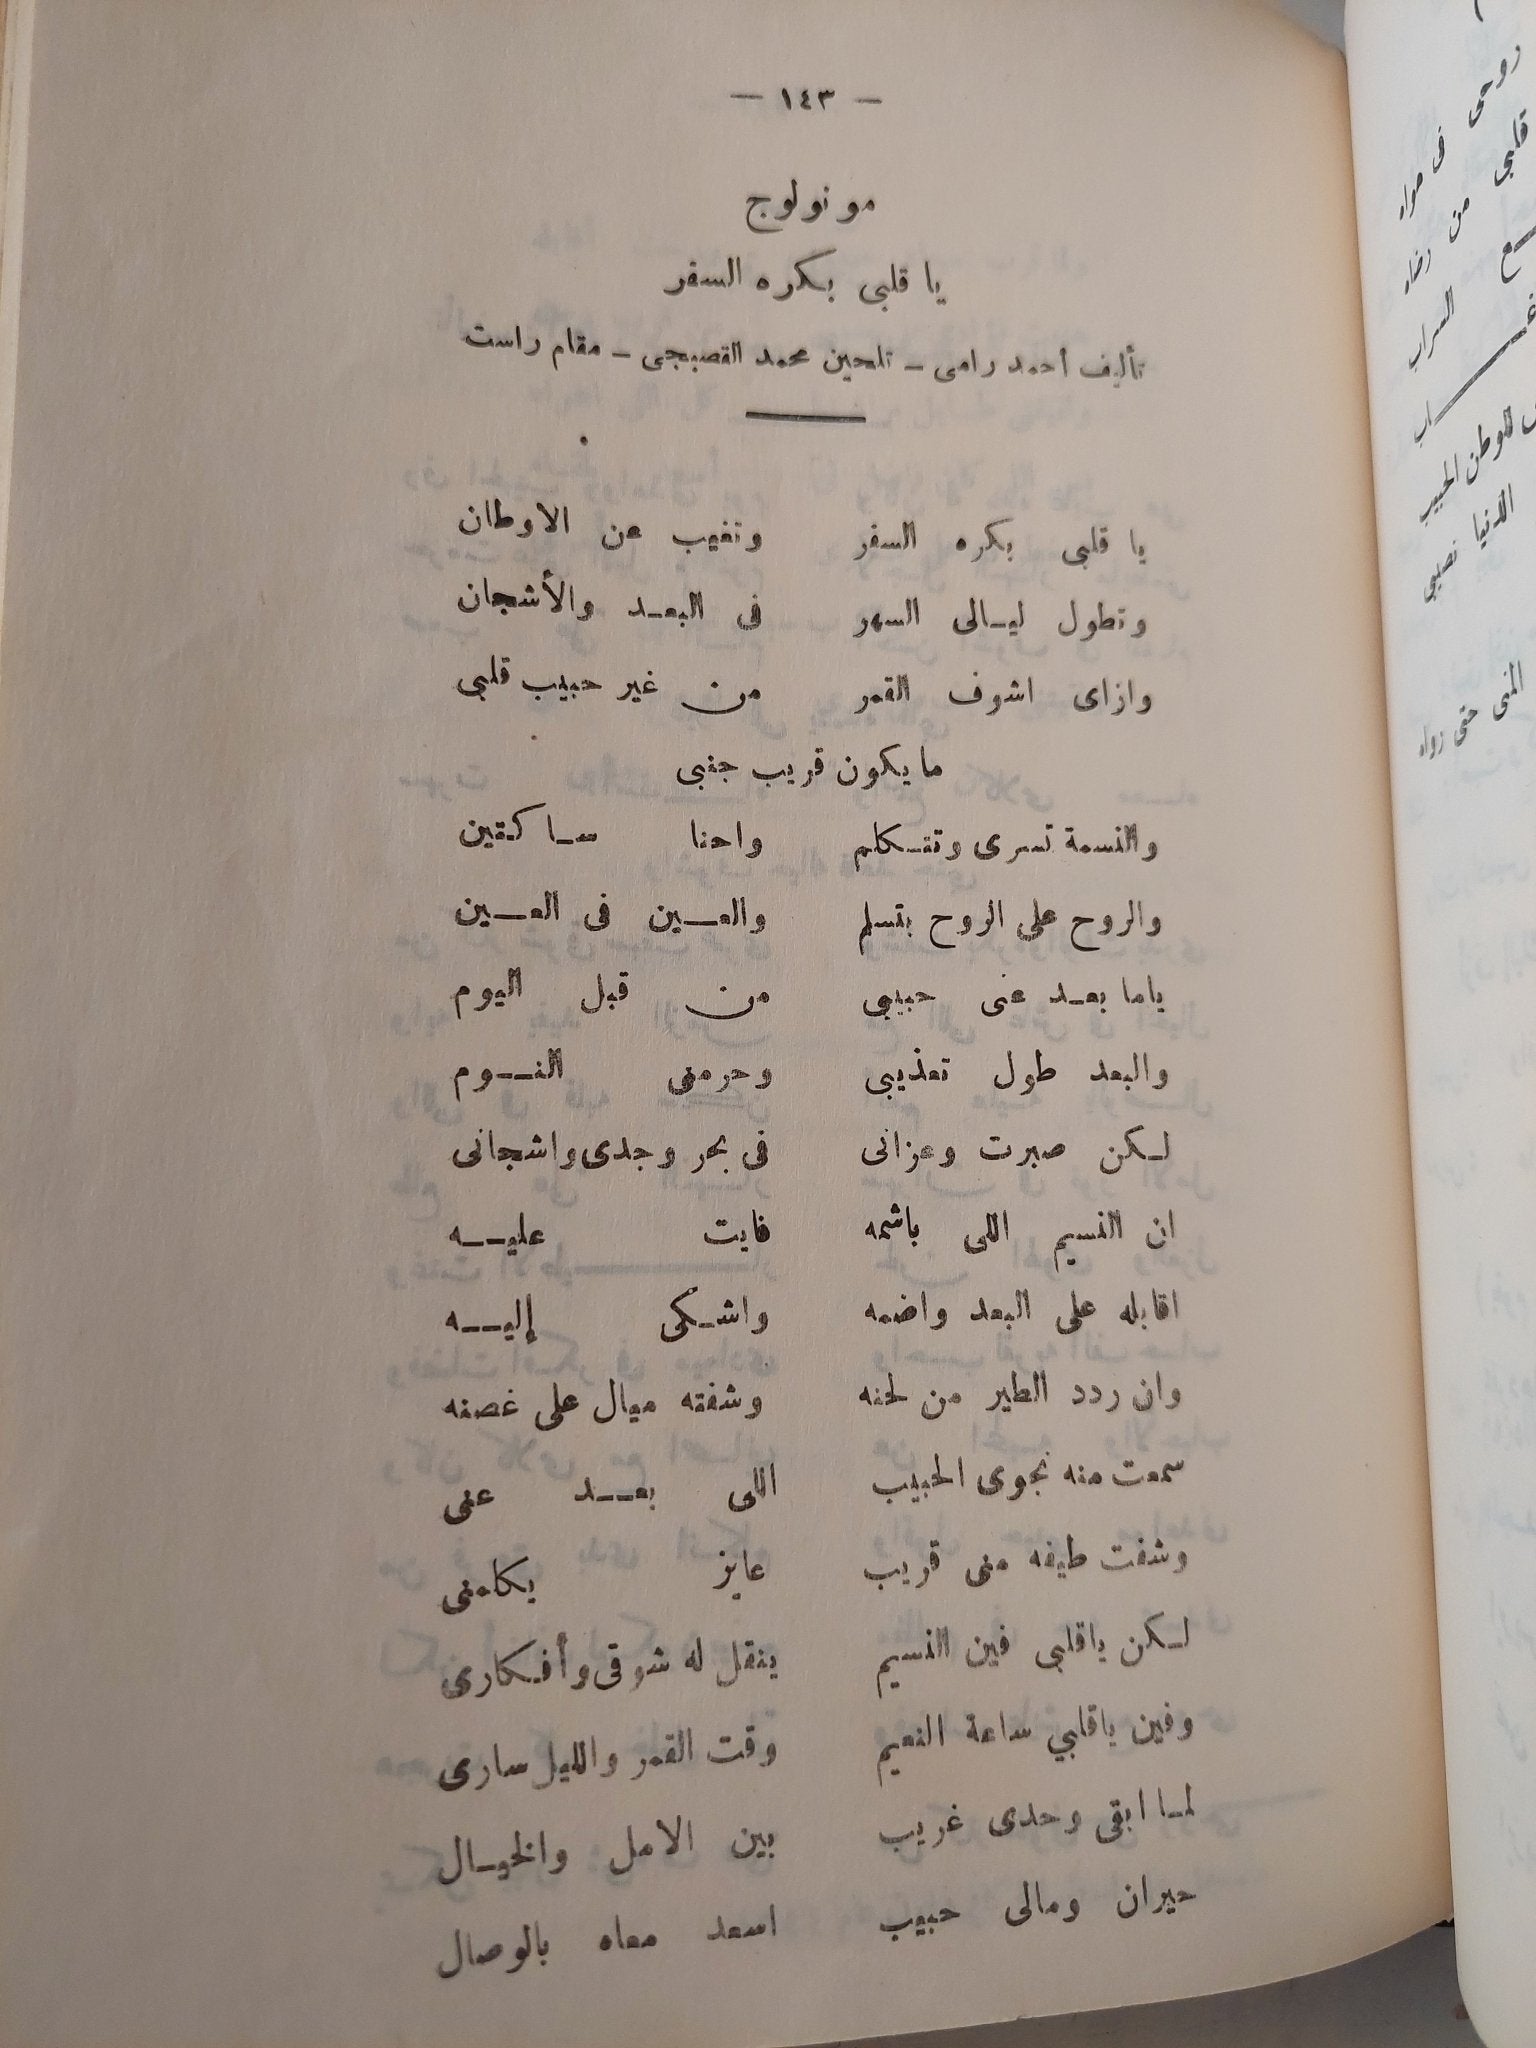 — ١٤٣ —
مونولوج
يا قلبى بكره السفر
تأليف أحمد رامى – تلحين محمد القصبجى – مقام راست
يا قلبى بكره السفر وتغيب عن الاوطان
وتطول ليالى السهر فى البعد والأشجان
وازاى اشوف القمر من غير حبيب قلبى
ما يكون قريب جنبى
والنسمة تسرى وتتكلم واحنا ساكتين
والروح على الروح بتسلم والعين فى العين
ياما بعد عنى حبيبى من قبل اليوم
والبعد طول تعذيبى وحرمنى النوم
لكن صبرت وعزانى فى بحر وجدى واشجانى
ان النسيم اللى باشمه فايت عليه
اقابله على البعد واضمه واشكى إليه
وان ردد الطير من لحنه وشفته ميال على غصنه
سمعت منه نجوى الحبيب اللى بعد عنى
وشفت طيفه منى قريب عايز يكلمنى
لكن ياقلبى فين النسيم ينقل له شوقى وأفكارى
وفين ياقلبي ساعة النعيم وقت القمر والليل سارى
لما ابقى وحدى غريب بين الامل والخيال
حيران ومالى حبيب اسعد معاه بالوصال
روحى فى هواه
قلبى من رضاه
السراب
للوطن الحبيب
الدنيا نصيبى
المنى حتى رواه